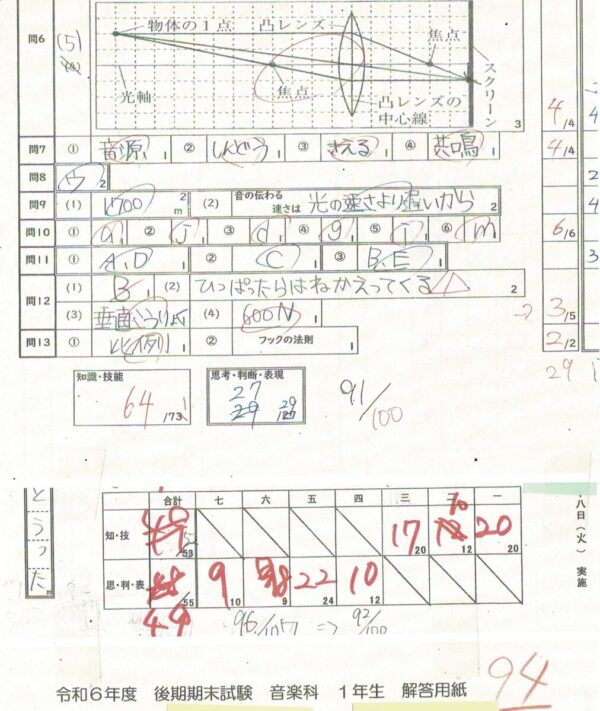 問6 (5) 物体の1点 凸レンズ 焦点
スクリーン
光軸 焦点 凸レンズの中心線 3
4/4
問7 ① 音原 1 ② しんどう 1 ③ きえる 1 ④ 共鳴 1 4/4
問8 ウ 2
問9 (1) 1700 m 2 (2) 音の伝わる速さは 光の速さより遅いから 2
問10 ① a 1 ② j 1 ③ d 1 ④ g 1 ⑤ i 1 ⑥ m 1 6/6
問11 ① A,D 1 ② C 1 ③ B,E 1
問12 (1) B 1 (2) ひっぱったらはねかえってくる 2
(3) 垂直こう力 1 (4) 600N 1 → 3/5
問13 ① 比例 1 ② フックの法則 1 2/2
29
知識・技能 64 /73
思考・判断・表現 27 29 29 /27
91/100
とうった
合計 七 六 五 四 三 二 一
知・技 53 17 20 10 12 20 20
思・判・表 55 9 10 8 9 22 24 10 12
49
96/107 ⇒ 93/100
八日(火)実施
令和6年度 後期期末試験 音楽科 1年生 解答用紙 94